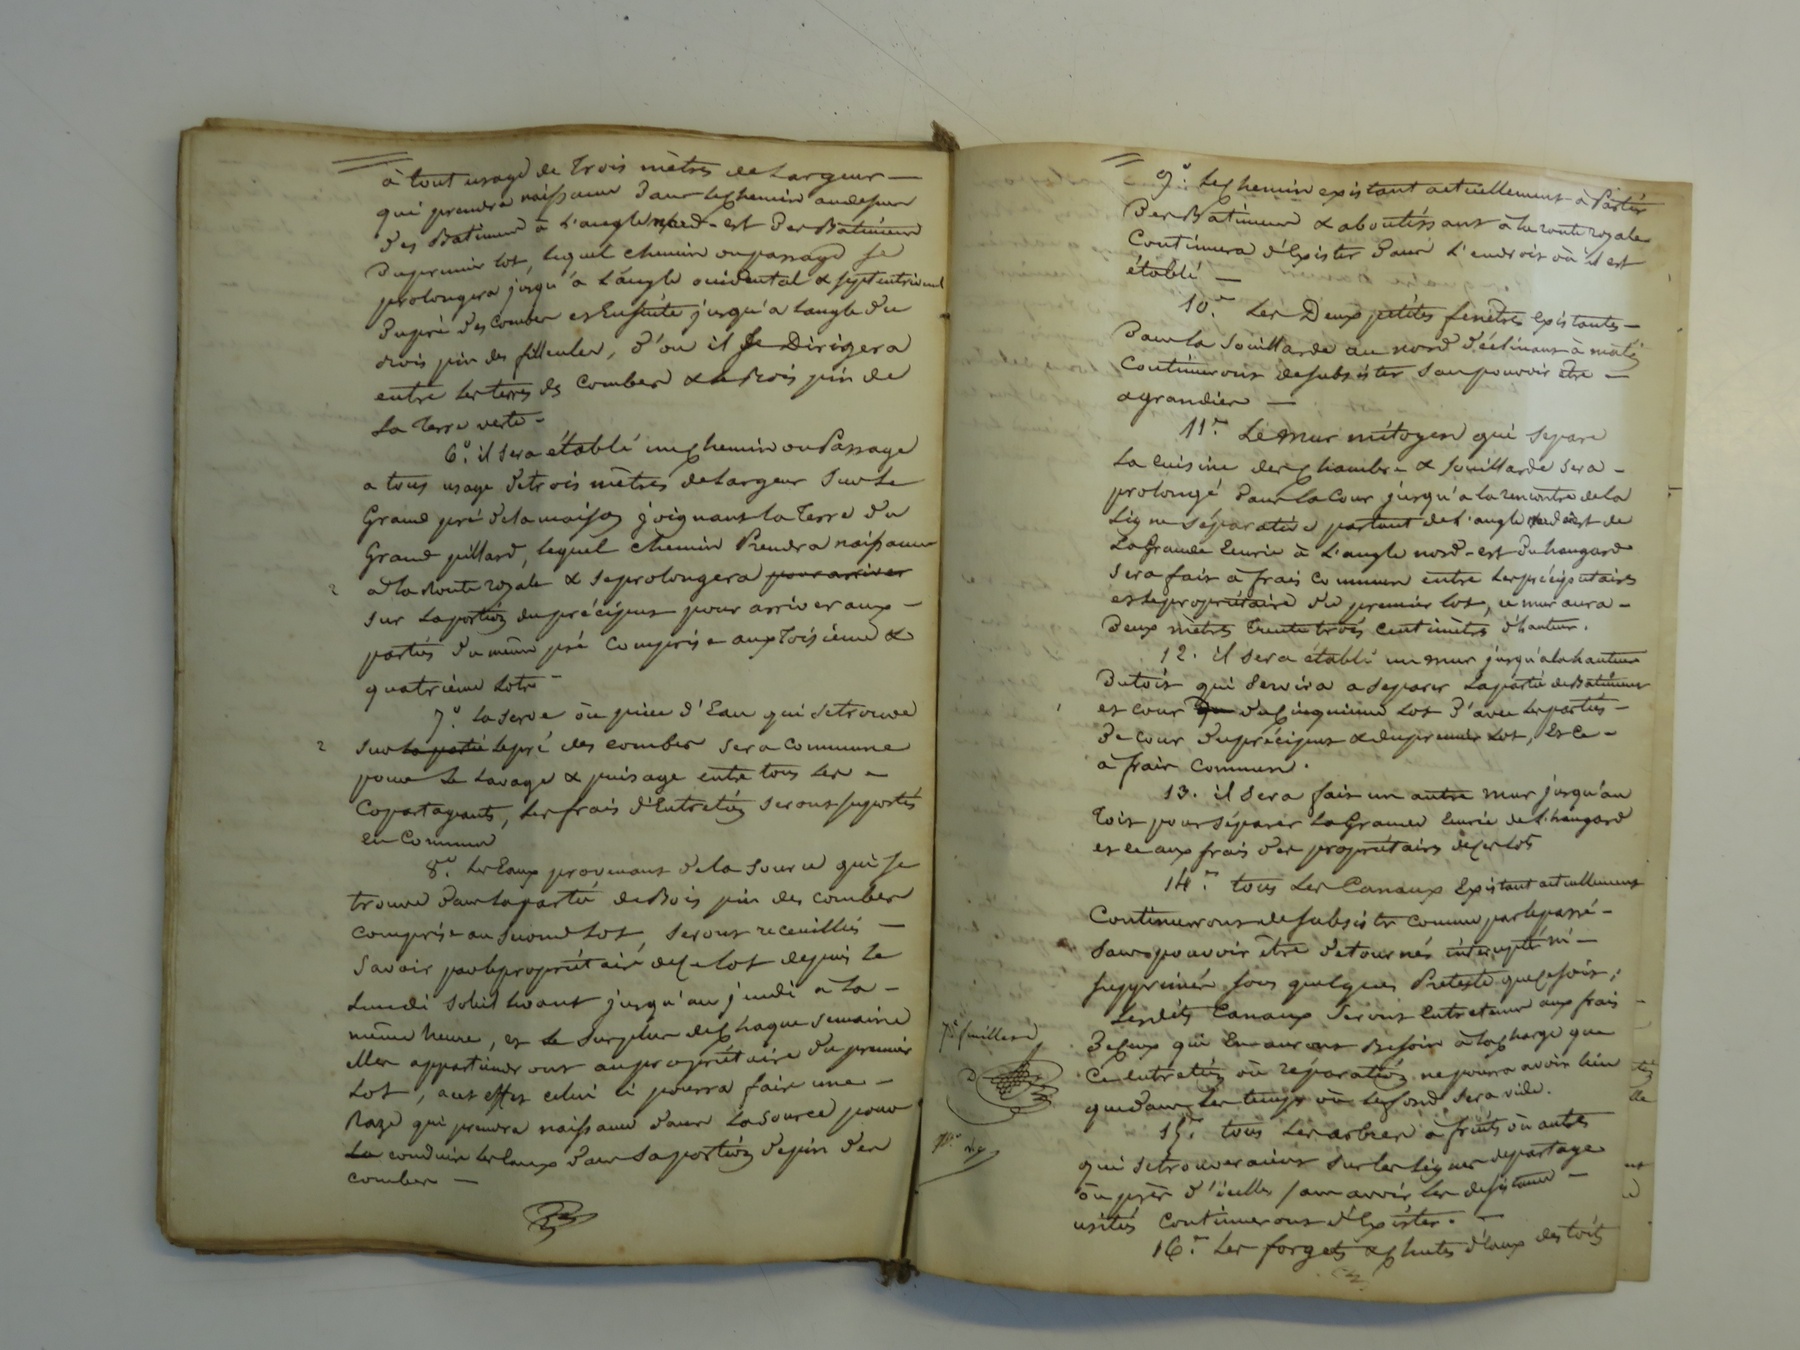 à tout usage de trois mètres de largeur —
qui prendra naissance dans le chemin au dessus
des Batiment à l'angle nord-est des Batiment
du premier lot, lequel chemin ou passage se
prolongera jusqu'à l'angle occidental & septentrional
du pré des combes et Ensuite jusqu'a l'angle du
bois pin des filleules, d'ou il se Dirigera
entre les terres des combes & le bois pin de
la Terre verte -
6.° il sera établi un chemin ou Passage
a tous usage de trois mètres de largeur sur le
Grand pré de la maison joignant la Terre du
Grand pillard, lequel chemin Prendra naissance
2 a la Route royale & se prolongera pour arriver
sur la portion du précipus pour arriver aux —
parties du même pré comprise aux troisième &
quatrième lots -
7.° la serve ou pièce d'Eau qui se trouve
2 sur la partie le pré des combes sera commune
pour le lavage & puisage entre tous les -
Copartageants, les frais d'Entretien seront suportés
en Commun
8.° les Eaux provenant de la source qui se
trouve dans la partie de Bois pin des combes
comprise au second lot, seront receuillies —
savoir par le propriétaire de ce lot depuis le
Lundi soleil levant jusqu'au jeudi à la —
même heure, et le surplus de chaque semaine
elles appartiendront au propriétaire du premier
lot, a cet effet celui ci pourra faire une —
Raze qui prendra naissance dans la source pour
la conduire les Eaux dans sa portion de pin des
combes —
9.° Le chemin existant actuellement à Partir
Des Batiment & aboutissant à la route royale
Continuera d'Exister dans l'endroit où il est
établi —
10.° Les Deux petites fenêtres existantes —
Dans la souillarde au nord
Continueront de subsister sans pouvoir être —
agrandies —
11.° Le mur mitoyen qui separe
la cuisine des chambre & souillarde sera —
prolongé dans la cour jusqu'a la rencontre de la
ligne séparative partant de l'angle nord ouest de
la Grande Ecurie à l'angle nord-est du hangard
sera fait à frais commun entre les préciputaires
et le propriétaire du premier lot, ce mur aura —
Deux mètres trente trois centimètres d'hauteur.
12. il sera établi un mur jusqu'a la hauteur
Du toit qui servira a separer la partie de Batiment
1 et cour du cinquième lot d'avec les parties —
De cour du précipus & du premier lot, et ce —
a frais commun.
13. il sera fait un autre mur jusqu'au
toit pour séparer la Grande Ecurie de l'hangard
et ce aux frais des propriétaires de ces lots
14.° tous les Canaux Existant actuellement
Continueront de subsister comme par le passé —
sans pouvoir être detournés interrupté ni —
supprimés sous quelques Préteste que ce soit,
Lesdits Canaux seront Entretenu aux frais
De ceux qui En auront Besoin à la charge que
Cet entretien où réparation ne pourra avoir lieu
que dans les temps où le fond sera vide.
15.° tous les arbres à fruits ou autres
qui se trouveraient sur les lignes de partage
ou près d'icelles sans avoir les distance —
usités continueront d'Exister. —
16.° Les forgets & chutes d'eaux des toits